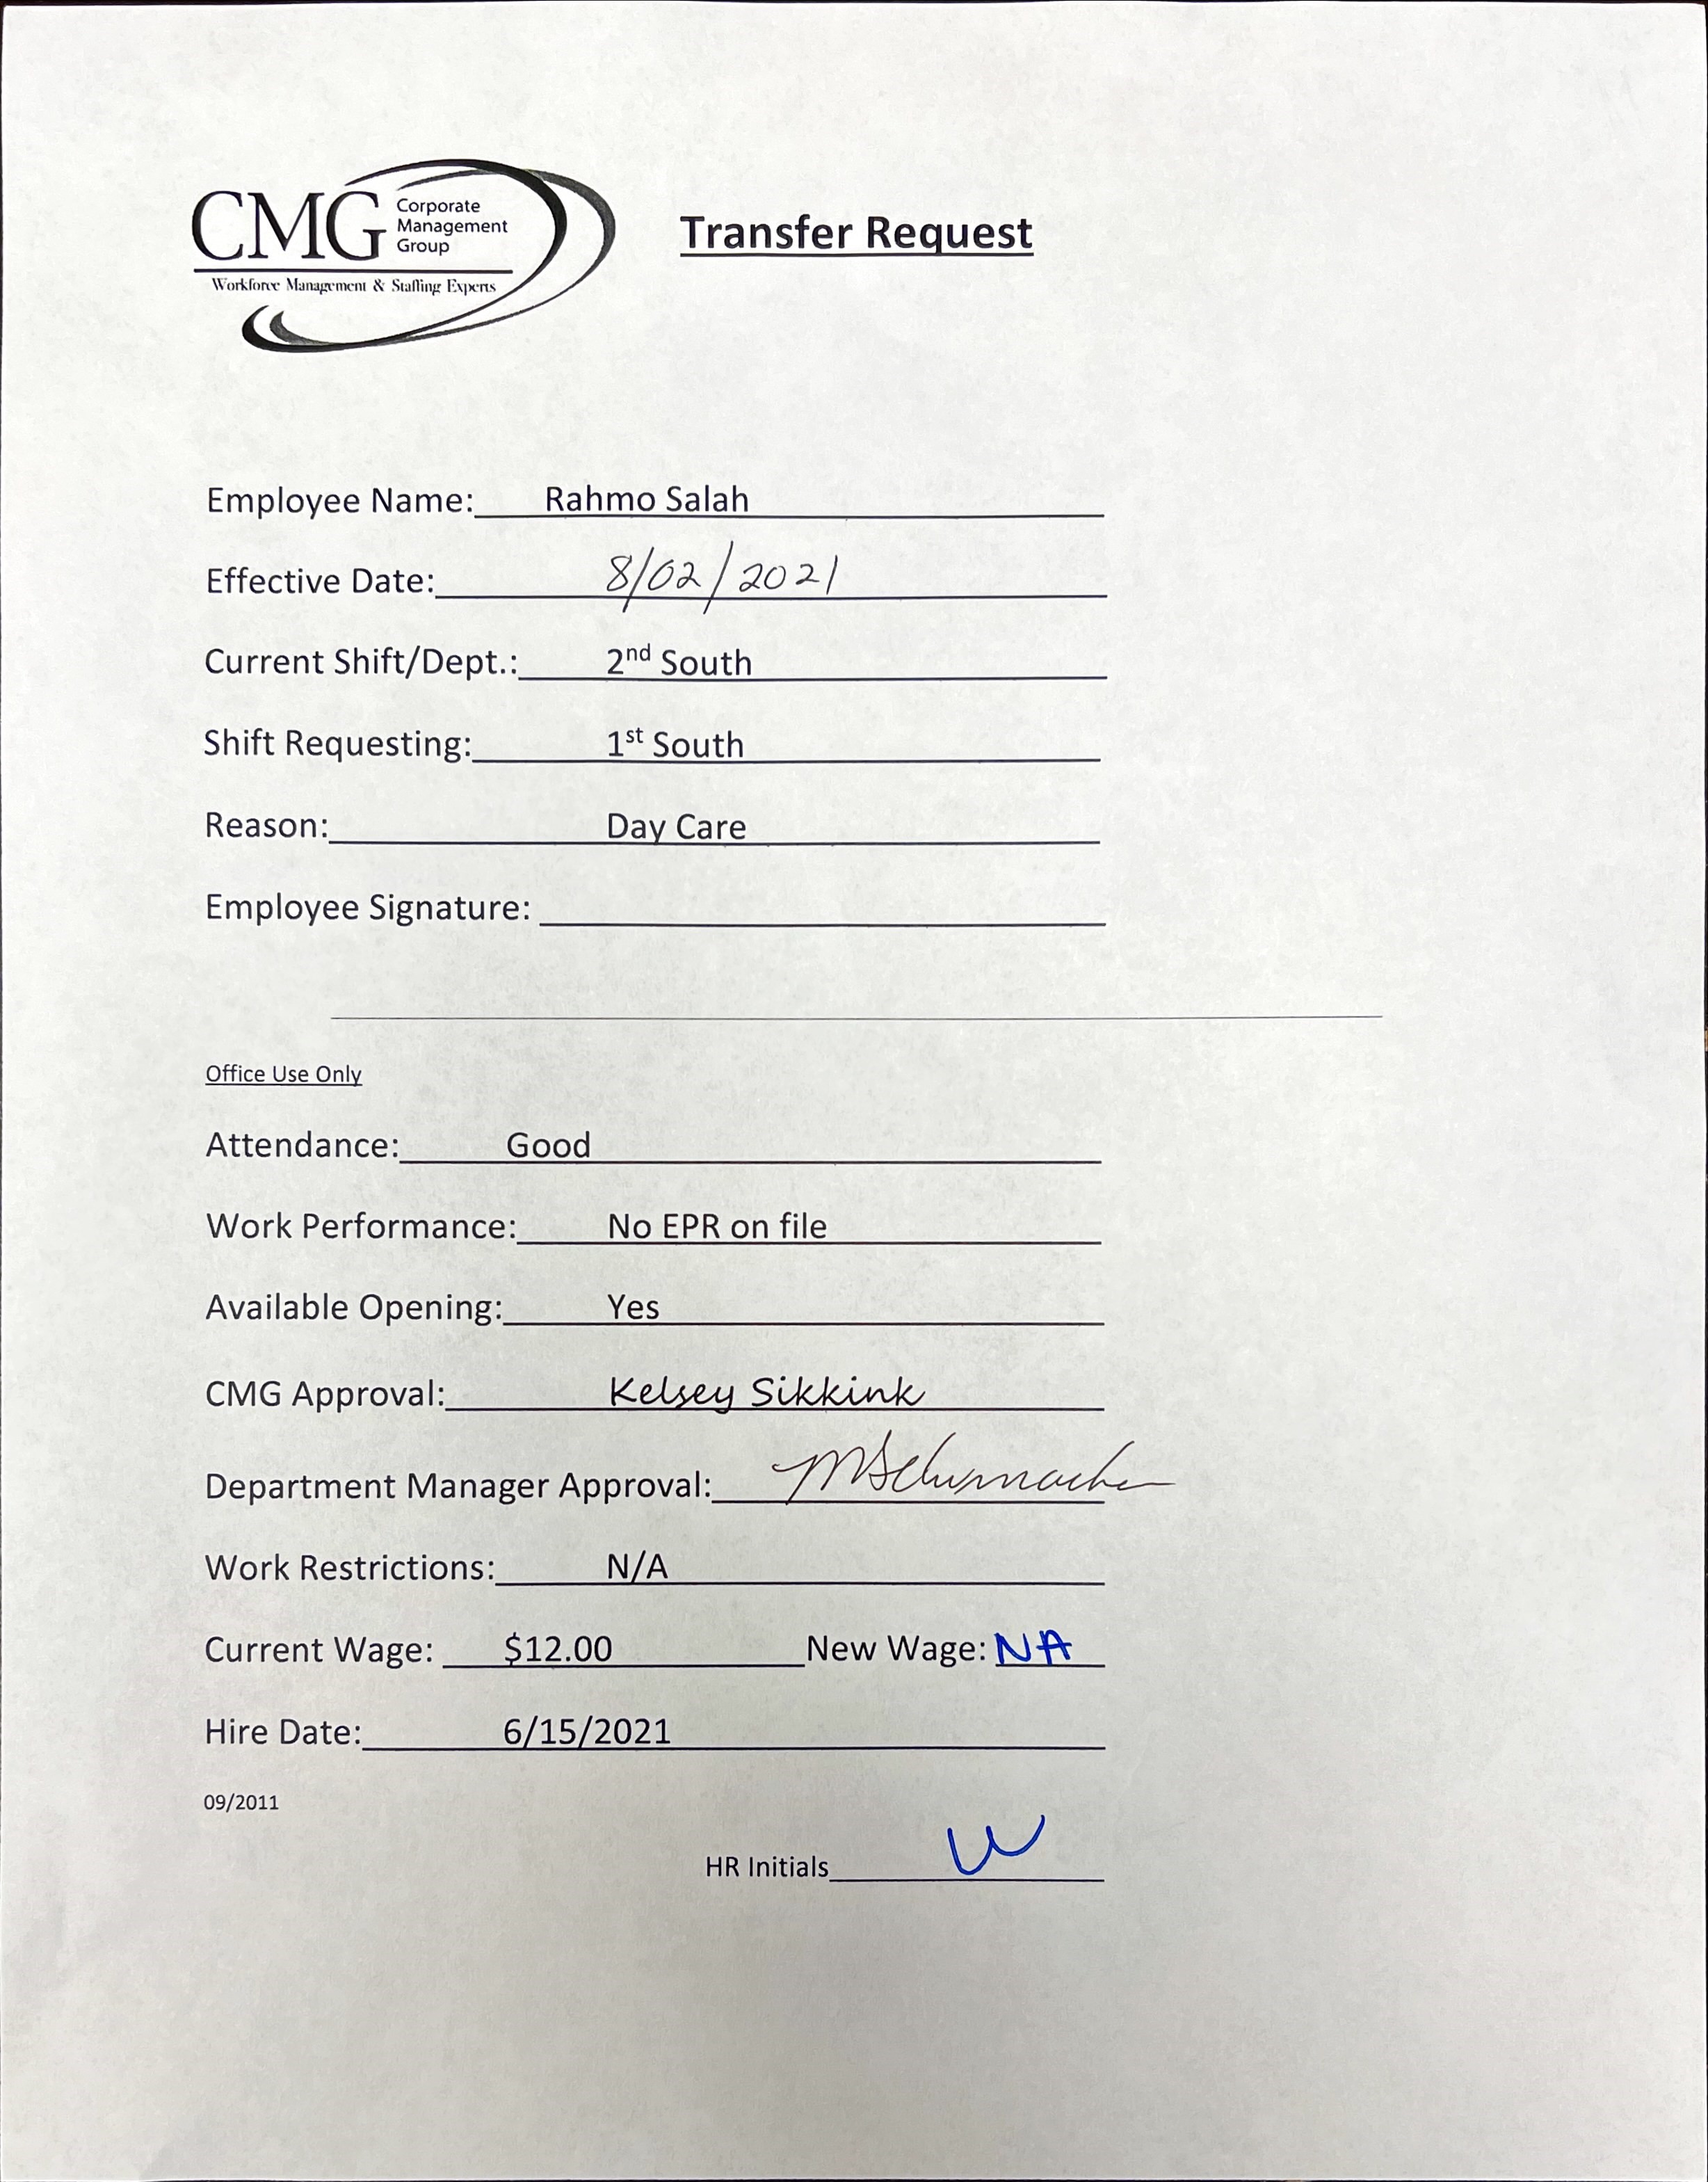 CMG Corporate
Management
Group
Workforce Management & Staffing Experts
Transfer Request
Employee Name: Rahmo Salah
Effective Date: 8/02/2021
Current Shift/Dept.: 2nd South
Shift Requesting: 1st South
Reason: Day Care
Employee Signature:
Office Use Only
Attendance: Good
Work Performance: No EPR on file
Available Opening: Yes
CMG Approval: Kelsey Sikkink
Department Manager Approval: MSchumacher
Work Restrictions: N/A
Current Wage: $12.00 New Wage: NA
Hire Date: 6/15/2021
09/2011
HR Initials